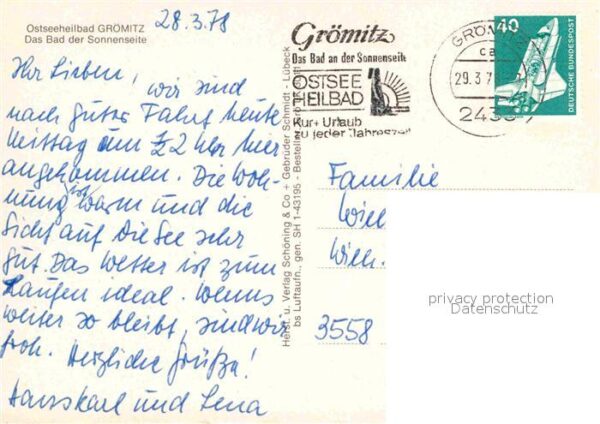 Ostseeheilbad GRÖMITZ
Das Bad der Sonnenseite
28.3.78
Ihr Lieben, wir sind
nach guter Fahrt heute
Mittag um ½2 Uhr hier
angekommen. Die Woh-
nung ist warm und die
Sicht auf die See sehr
gut. Das Wetter ist zum
Laufen ideal. Wenns
weiter so bleibt, sind wir
froh. Herzliche Grüße!
Hanskarl und Lena
Herst. u. Verlag Schöning & Co + Gebrüder Schmidt - Lübeck
bs Luftaufn., gen. SH 1-43195 - Bestellnr.
Grömitz
Das Bad an der Sonnenseite
OSTSEE
HEILBAD
Kur + Urlaub
zu jeder Jahreszeit
GRÖM
ca
29.3.7
2433
40
DEUTSCHE BUNDESPOST
Familie
Will
Wilh.
3558
privacy protection
Datenschutz